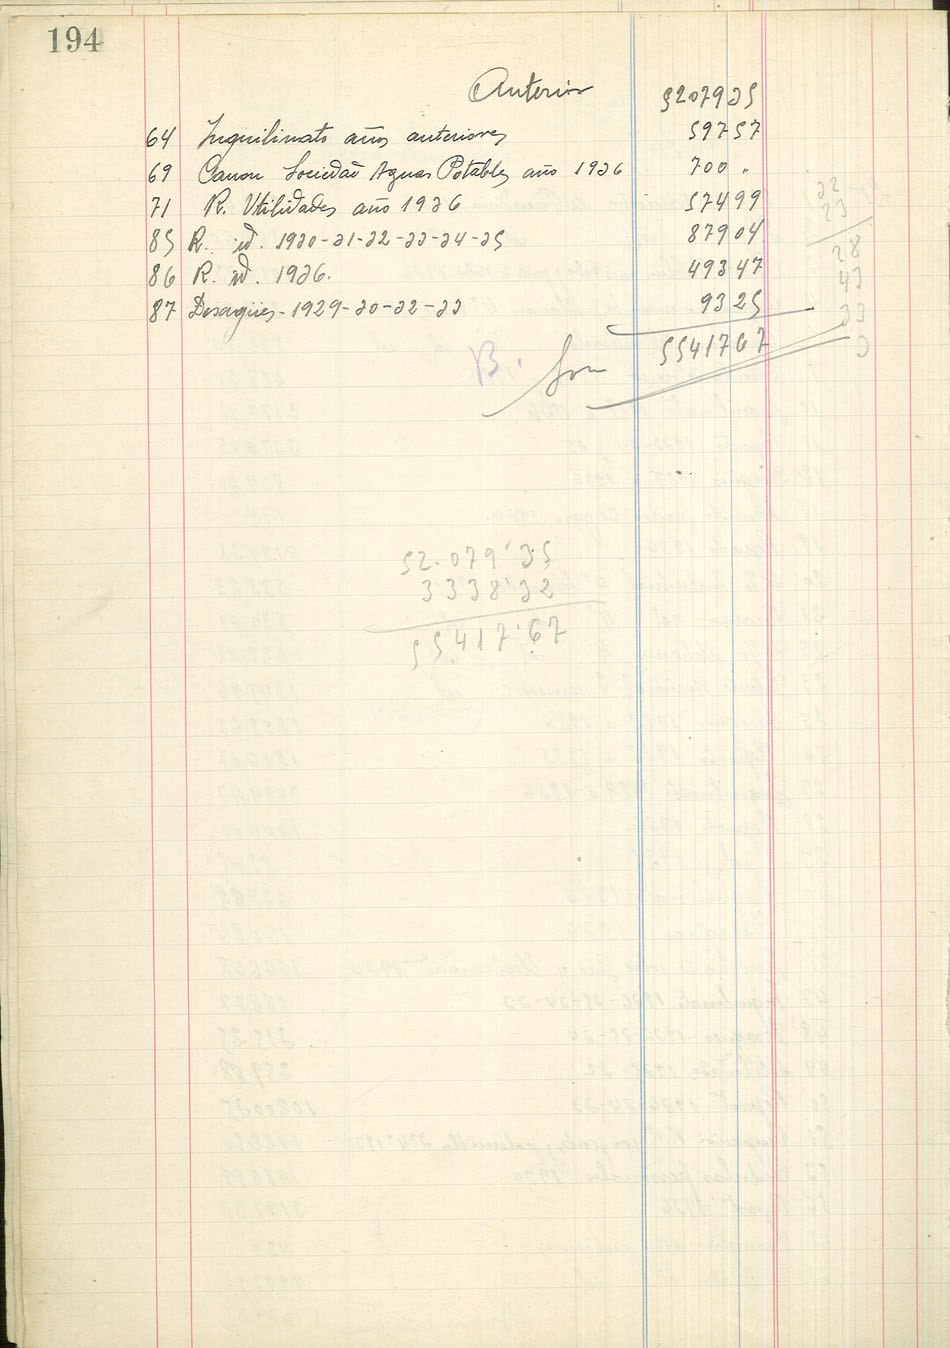 194
Anterior 5207935
64 Inquilinato años anteriores 59757
69 Canon Sociedad Aguas Potables año 1936 700 "
71 R. Utilidades año 1936 57499
85 R. id. 1930-31-32-33-34-35 87904
86 R. id. 1936. 49347
87 Desagües-1929-30-32-33 9325
B. Son 5541767
23
28
43
33
52.079'35
3338'32
55417'67